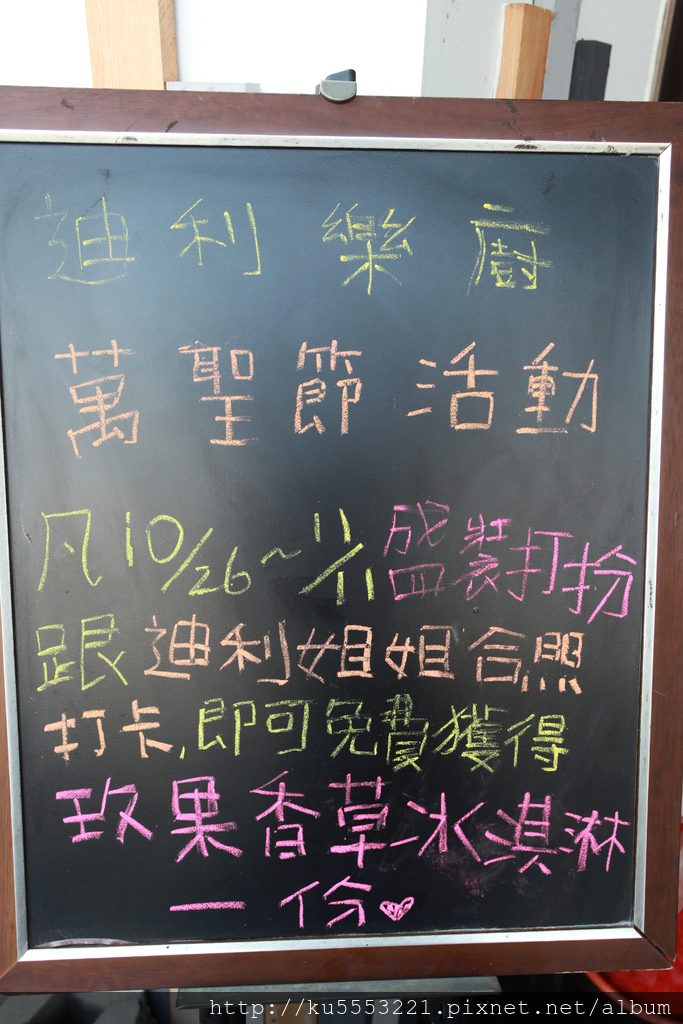 迪利樂廚
萬聖節活動
凡10/26~11/11盛裝打扮
跟迪利姐姐合照
打卡,即可免費獲得
玫果香草冰淇淋
一份♡
http://ku5553221.pixnet.net/album